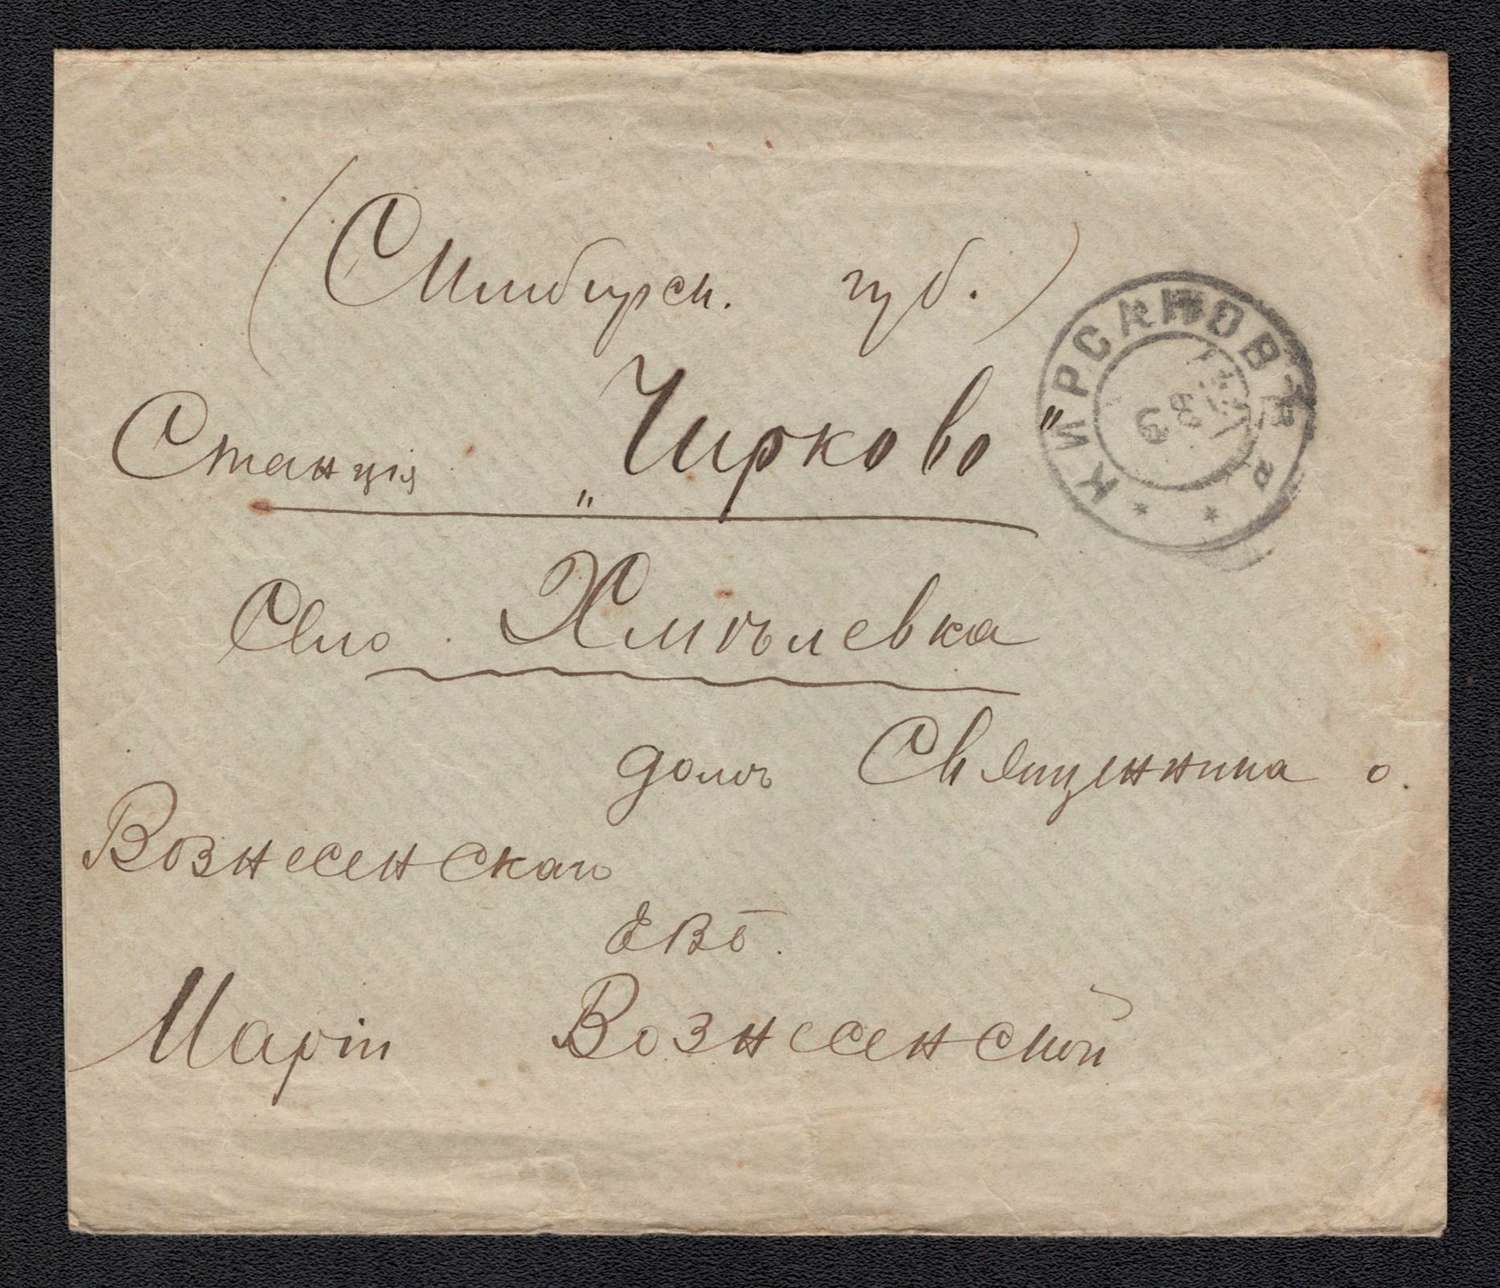 (Симбирск. губ.)
Станція „Чирково"
Село Хмѣлевка
домъ Священника о.
Вознесенскаго
ЕВБ.
Маріи Вознесенской
КИРСАНОВЪ